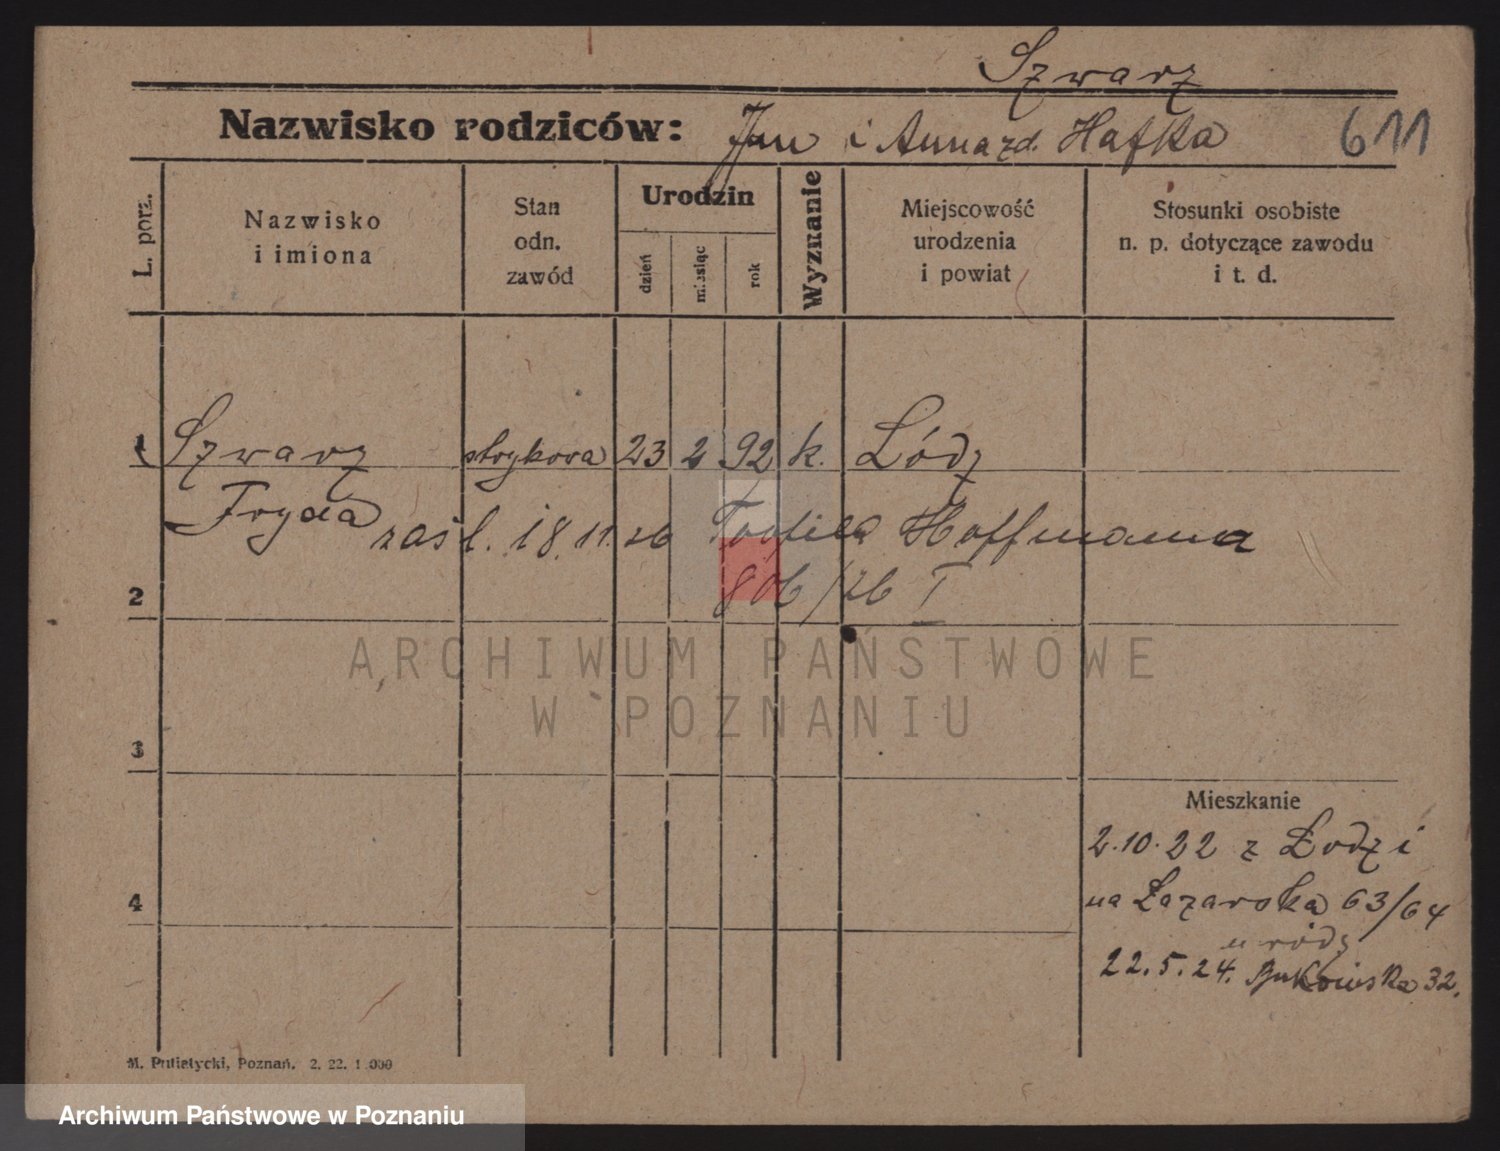 Szwarz
Nazwisko rodziców: Jan i Anna zd. Hafka 611
L. porz.
Nazwisko
i imiona
Stan
odn.
zawód
Urodzin
dzień
miesiąc
rok
Wyznanie
Miejscowość
urodzenia
i powiat
Stosunki osobiste
n. p. dotyczące zawodu
i t. d.
1 Szwarz 23 2 92 k. Łódz
Fryda zaśl. 18.11.26 Hoffmanna
2 806/26 I
ARCHIWUM PAŃSTWOWE
W POZNANIU
3
Mieszkanie
2.10.22 z Łodzi
4 na Łazarska 63/64
u
22.5.24. Bukowska 32.
M. Putiatycki, Poznań. 2. 22.
Archiwum Państwowe w Poznaniu